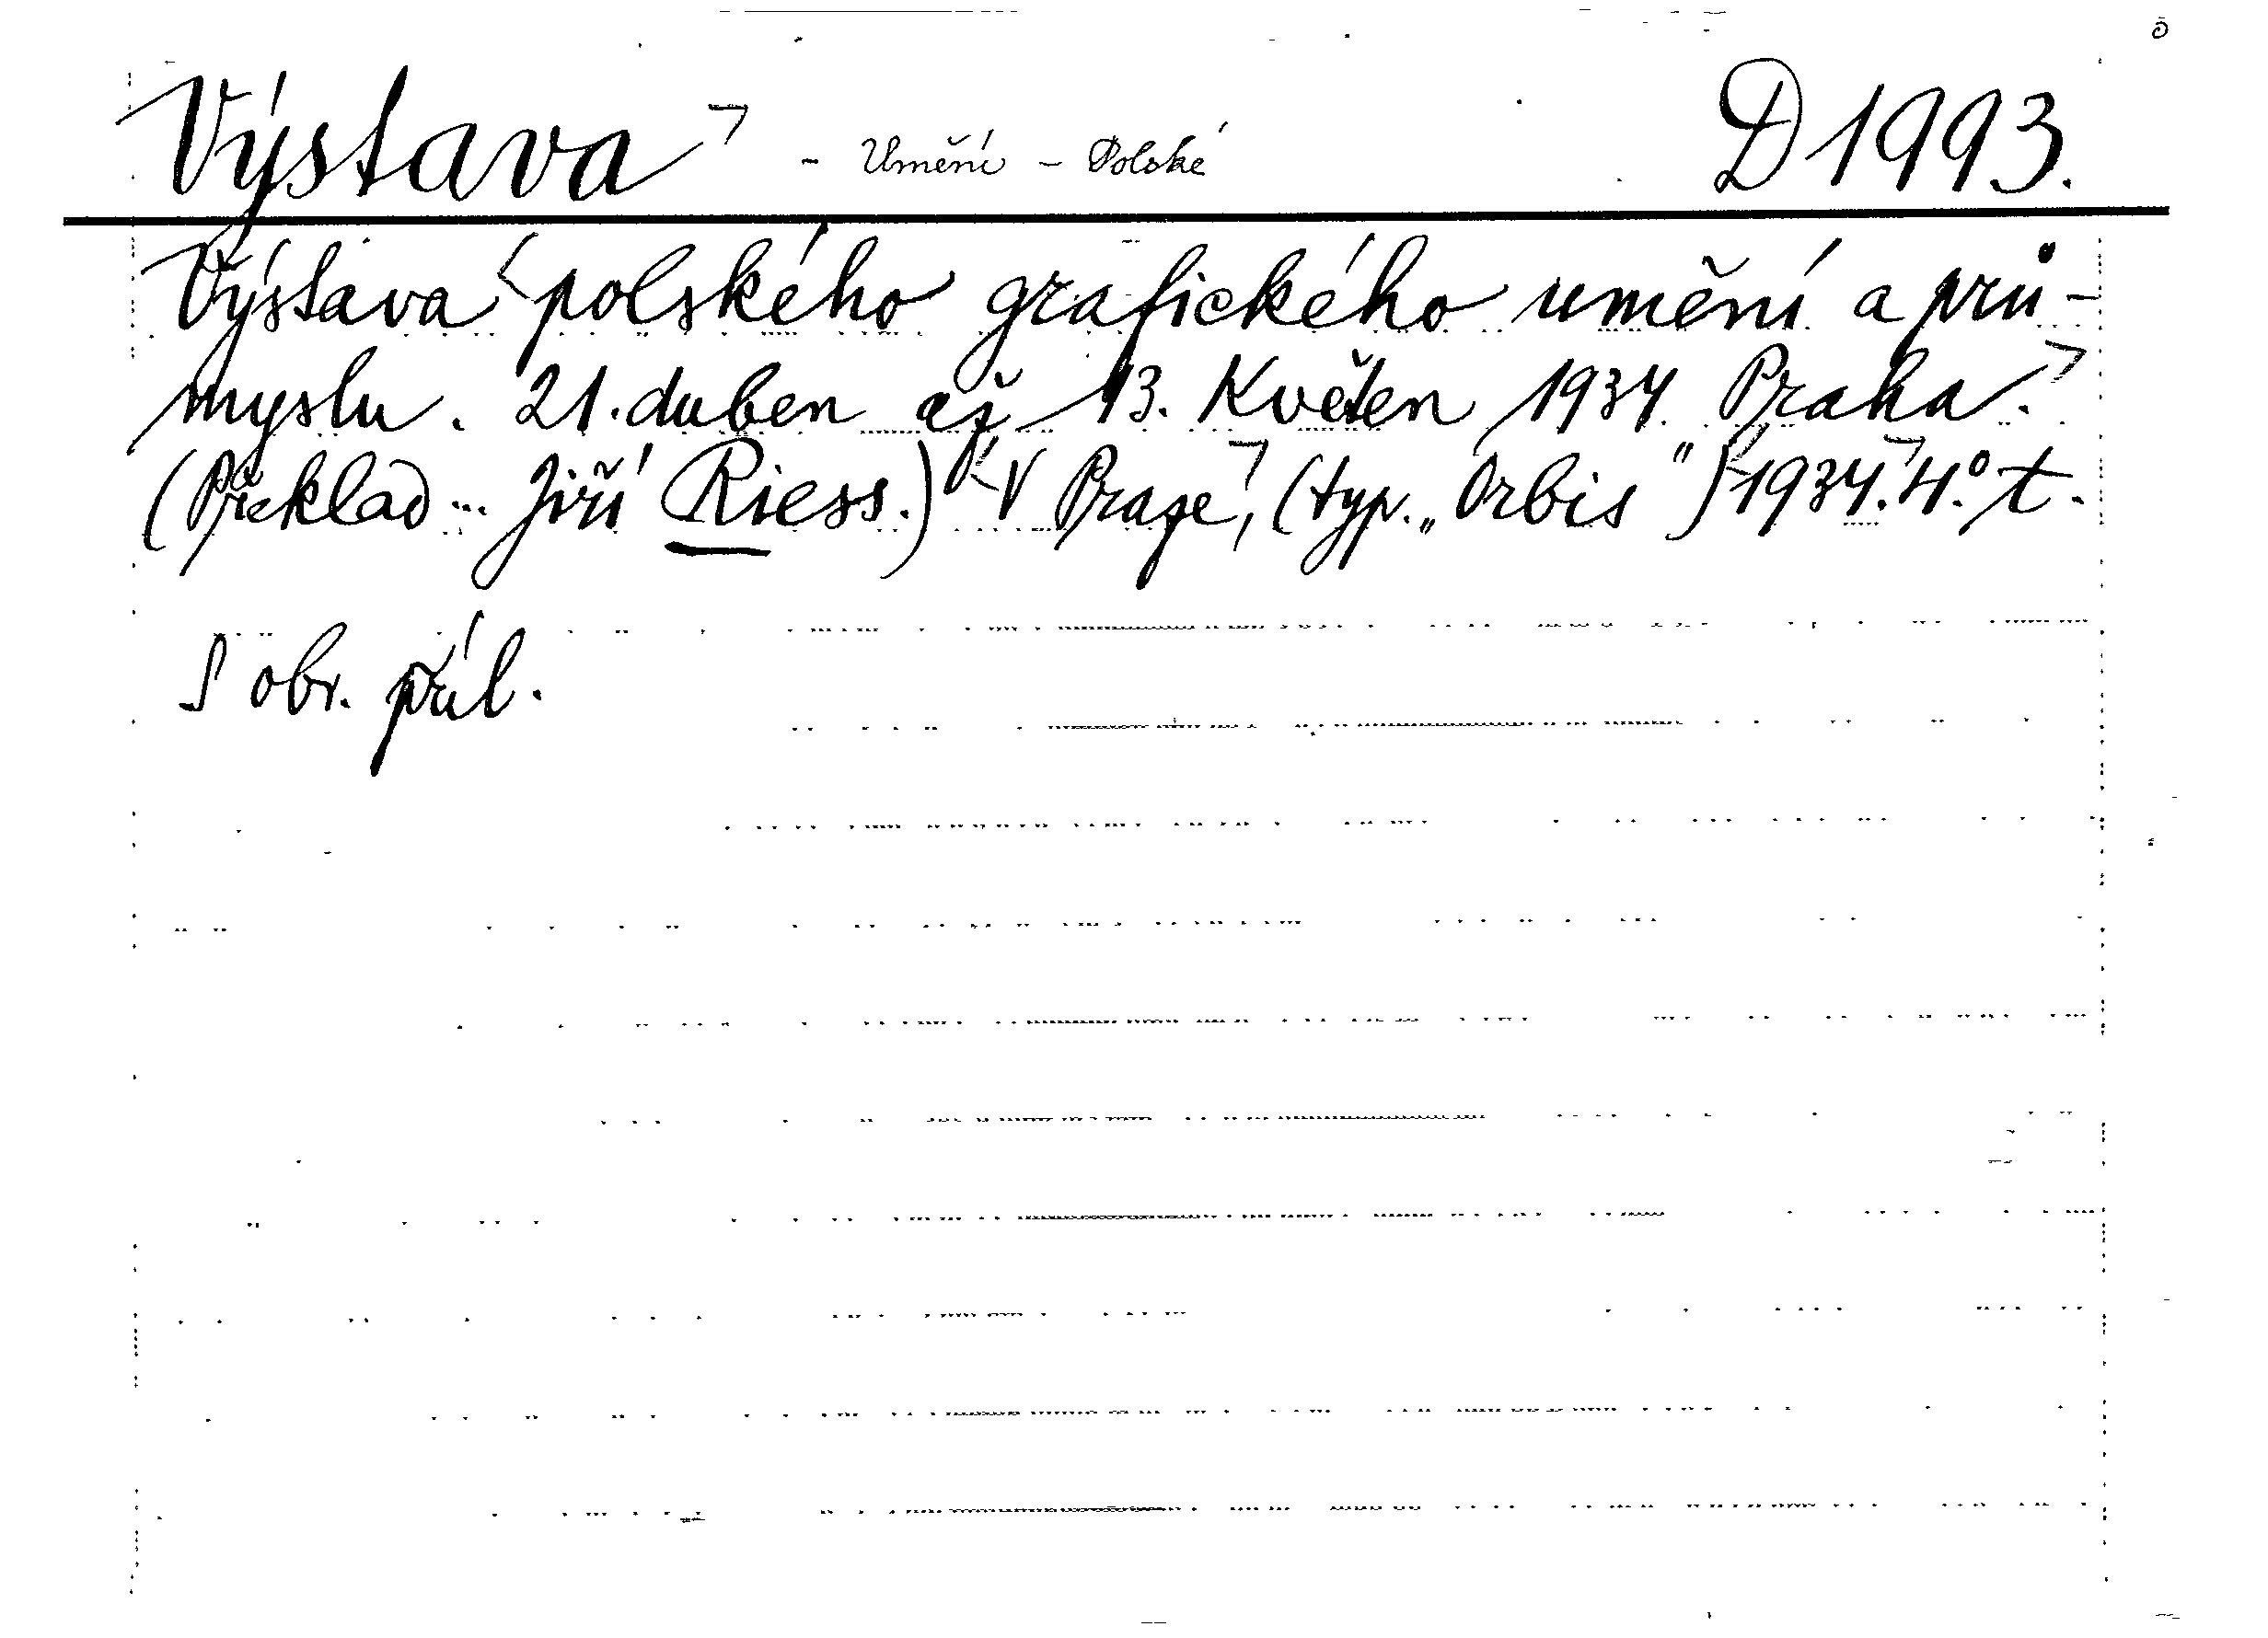 Výstava - Umění - Polské D 1993.
Výstava polského grafického umění a prů-
myslu. 21. duben až 13. Květen 1934 Praha.
(Překlad... Jiří Riess.) V Praze, (typ. „Orbis") 1934. 4.° t.
S obr. příl.